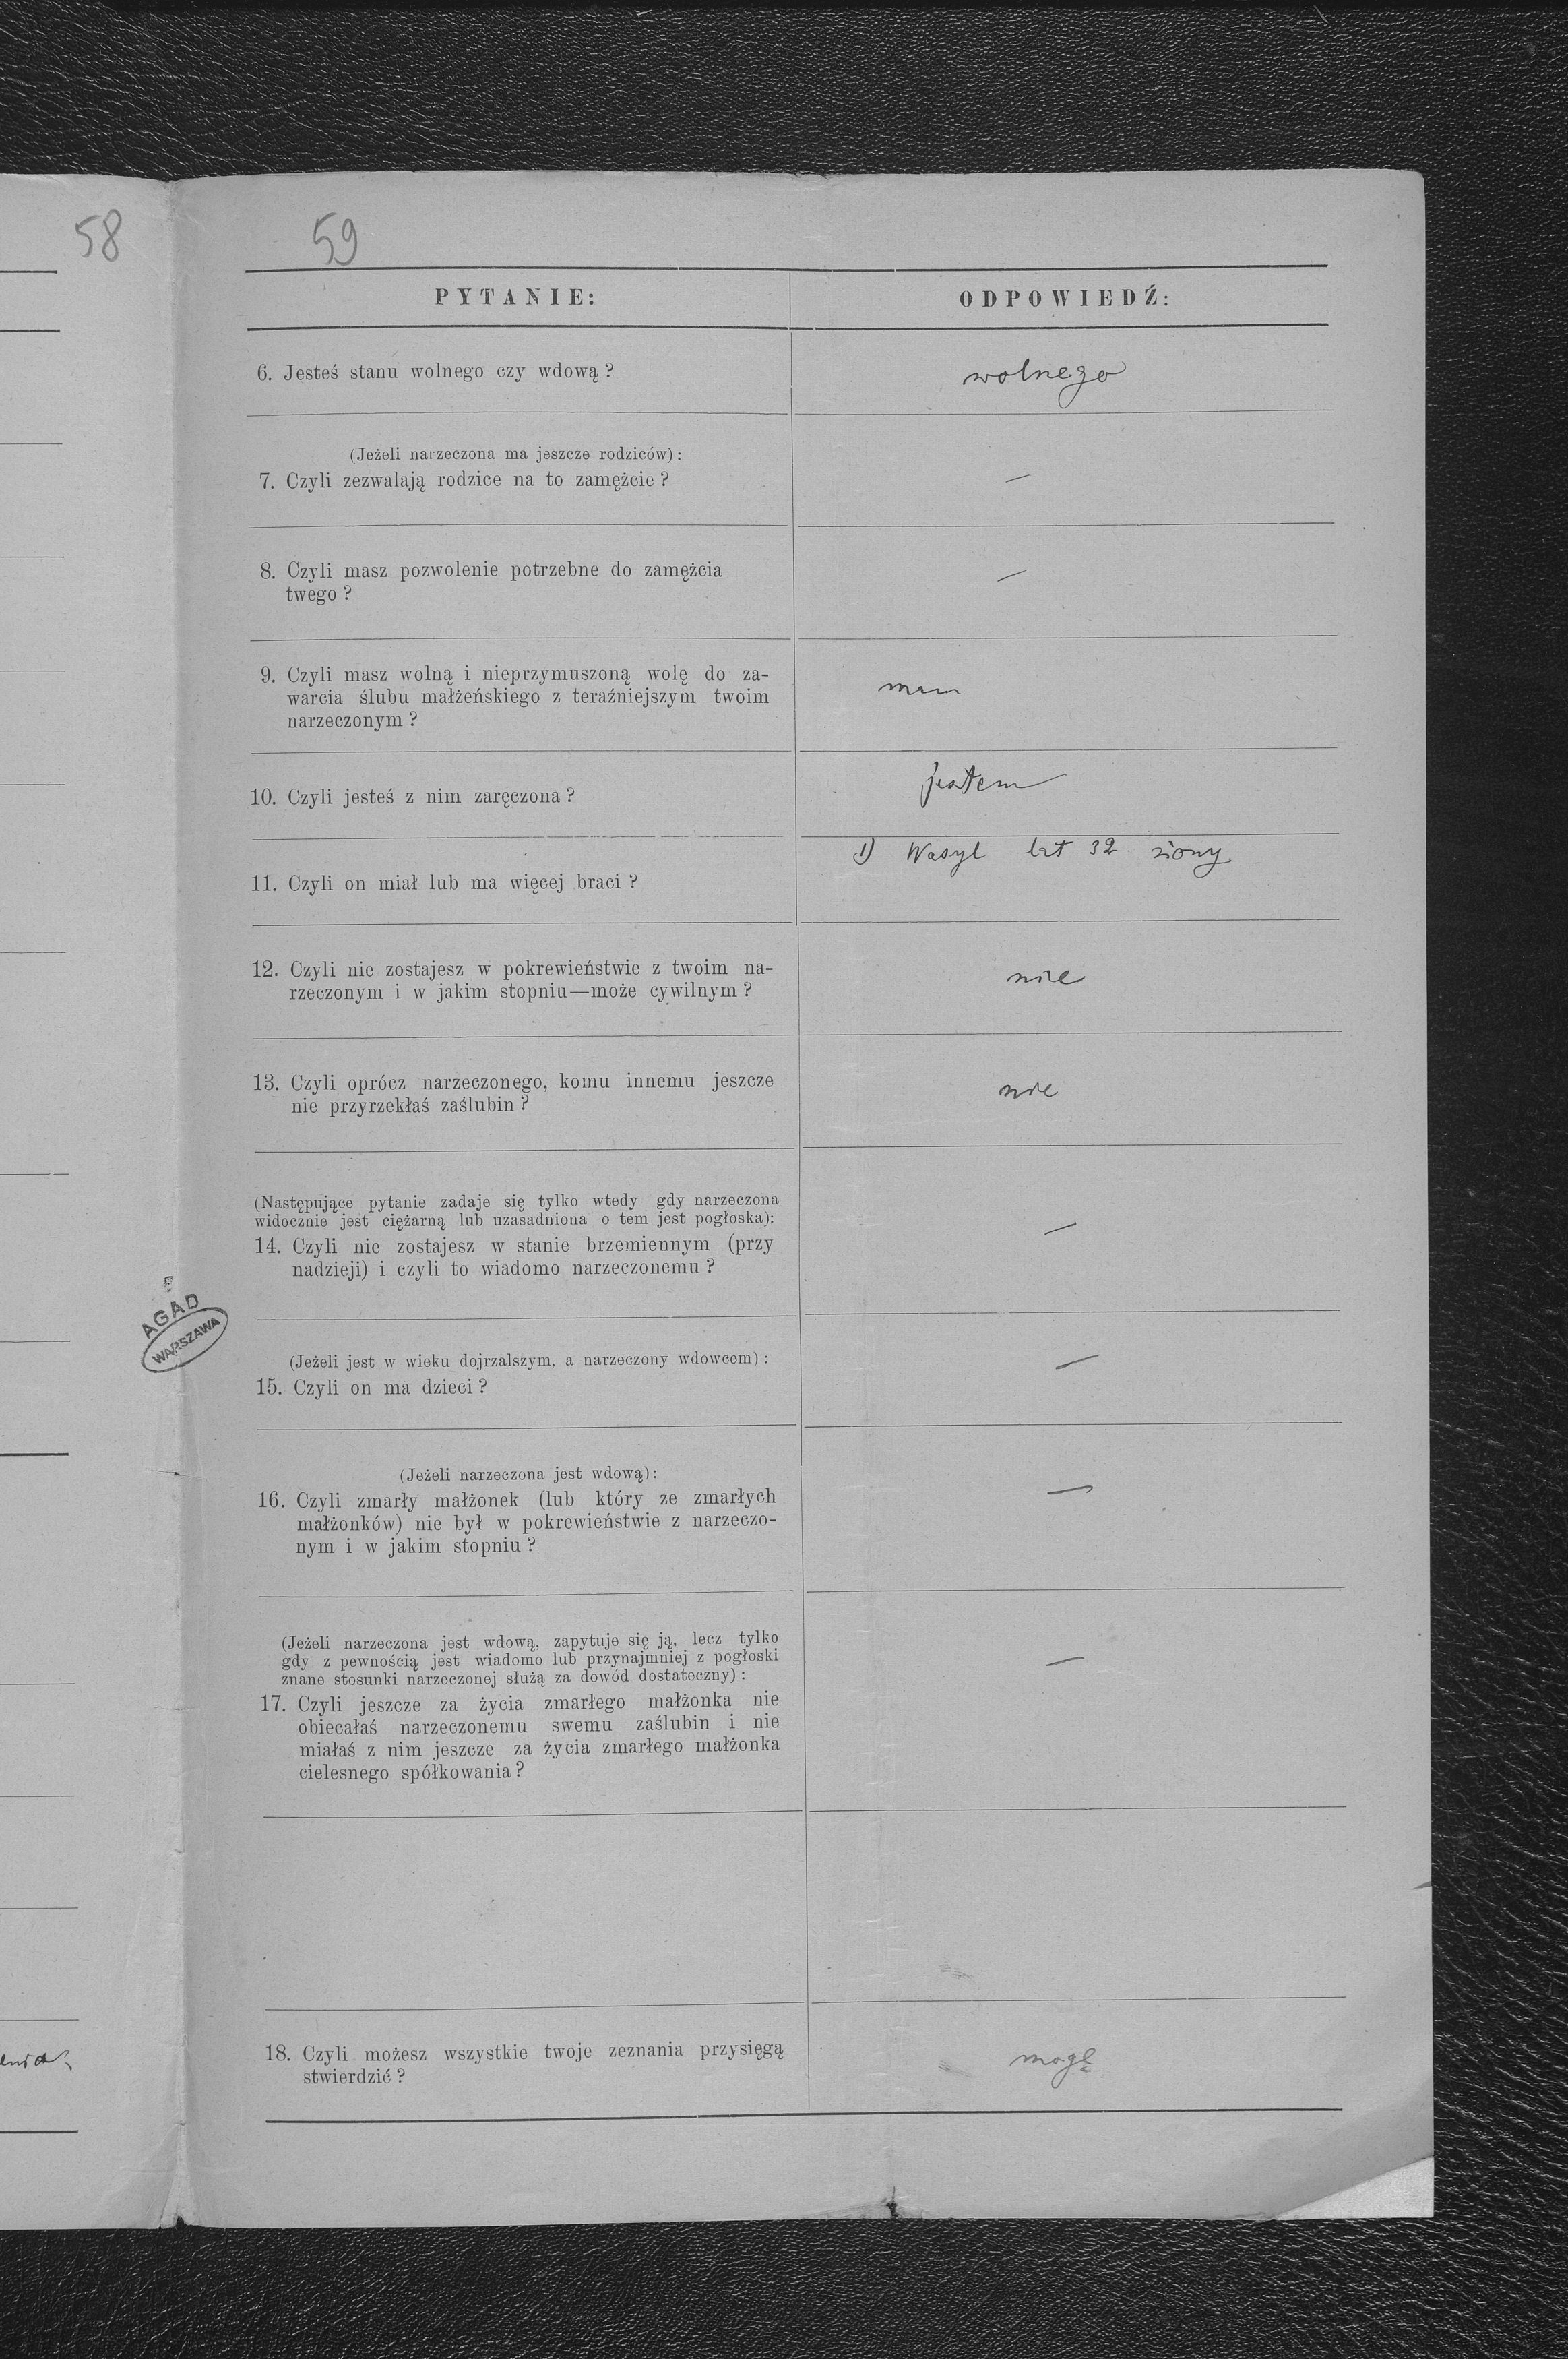 58
59
PYTANIE:
ODPOWIEDŹ:
6. Jesteś stanu wolnego czy wdową?
wolnego
(Jeżeli narzeczona ma jeszcze rodziców):
7. Czyli zezwalają rodzice na to zamężcie?
—
8. Czyli masz pozwolenie potrzebne do zamężcia
twego?
—
9. Czyli masz wolną i nieprzymuszoną wolę do za-
warcia ślubu małżeńskiego z teraźniejszym twoim
narzeczonym?
mam
10. Czyli jesteś z nim zaręczona?
jestem
11. Czyli on miał lub ma więcej braci?
1) Wasyl lat 32
12. Czyli nie zostajesz w pokrewieństwie z twoim na-
rzeczonym i w jakim stopniu—może cywilnym?
nie
13. Czyli oprócz narzeczonego, komu innemu jeszcze
nie przyrzekłaś zaślubin?
nie
(Następujące pytanie zadaje się tylko wtedy gdy narzeczona
widocznie jest ciężarną lub uzasadniona o tem jest pogłoska):
14. Czyli nie zostajesz w stanie brzemiennym (przy
nadzieji) i czyli to wiadomo narzeczonemu?
—
AGAD
WARSZAWA
(Jeżeli jest w wieku dojrzalszym, a narzeczony wdowcem):
15. Czyli on ma dzieci?
—
(Jeżeli narzeczona jest wdową):
16. Czyli zmarły małżonek (lub który ze zmarłych
małżonków) nie był w pokrewieństwie z narzeczo-
nym i w jakim stopniu?
—
(Jeżeli narzeczona jest wdową, zapytuje się ją, lecz tylko
gdy z pewnością jest wiadomo lub przynajmniej z pogłoski
znane stosunki narzeczonej służą za dowód dostateczny):
17. Czyli jeszcze za życia zmarłego małżonka nie
obiecałaś narzeczonemu swemu zaślubin i nie
miałaś z nim jeszcze za życia zmarłego małżonka
cielesnego spółkowania?
—
18. Czyli możesz wszystkie twoje zeznania przysięgą
stwierdzić?
mogę